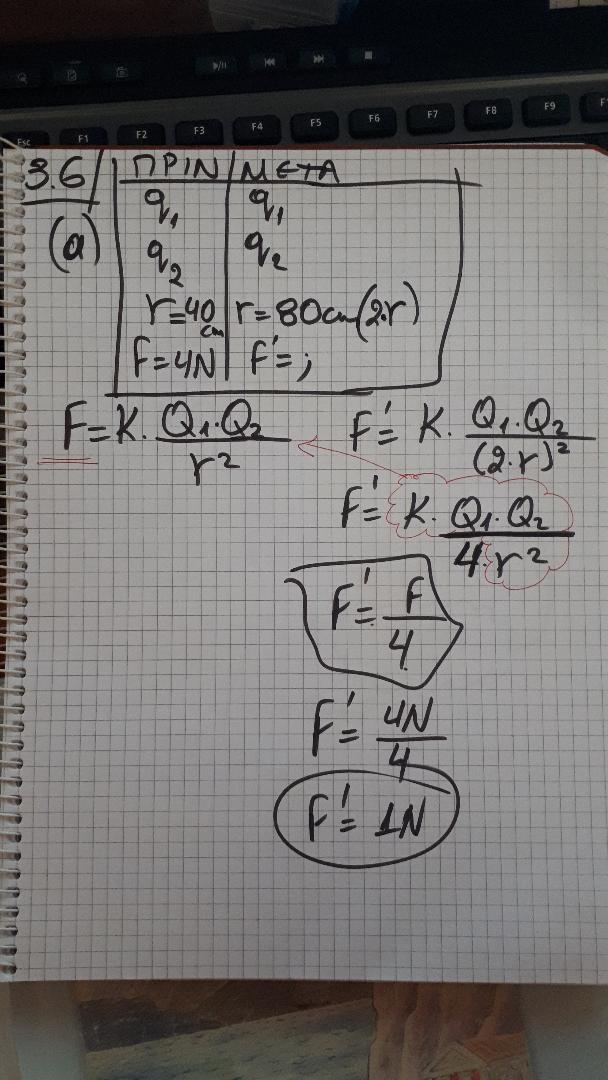 Esc F1 F2 F3 F4 F5 F6 F7 F8 F9
3.6 ΠΡΙΝ ΜΕΤΑ
(a) q₁ q₁
q₂ q₂
r=40cm r=80cm(2·r)
F=4N F'=;
F=K·Q₁·Q₂/r² F'=K·Q₁·Q₂/(2·r)²
F'=K·Q₁·Q₂/4·r²
F'=F/4
F'=4N/4
F'=1N